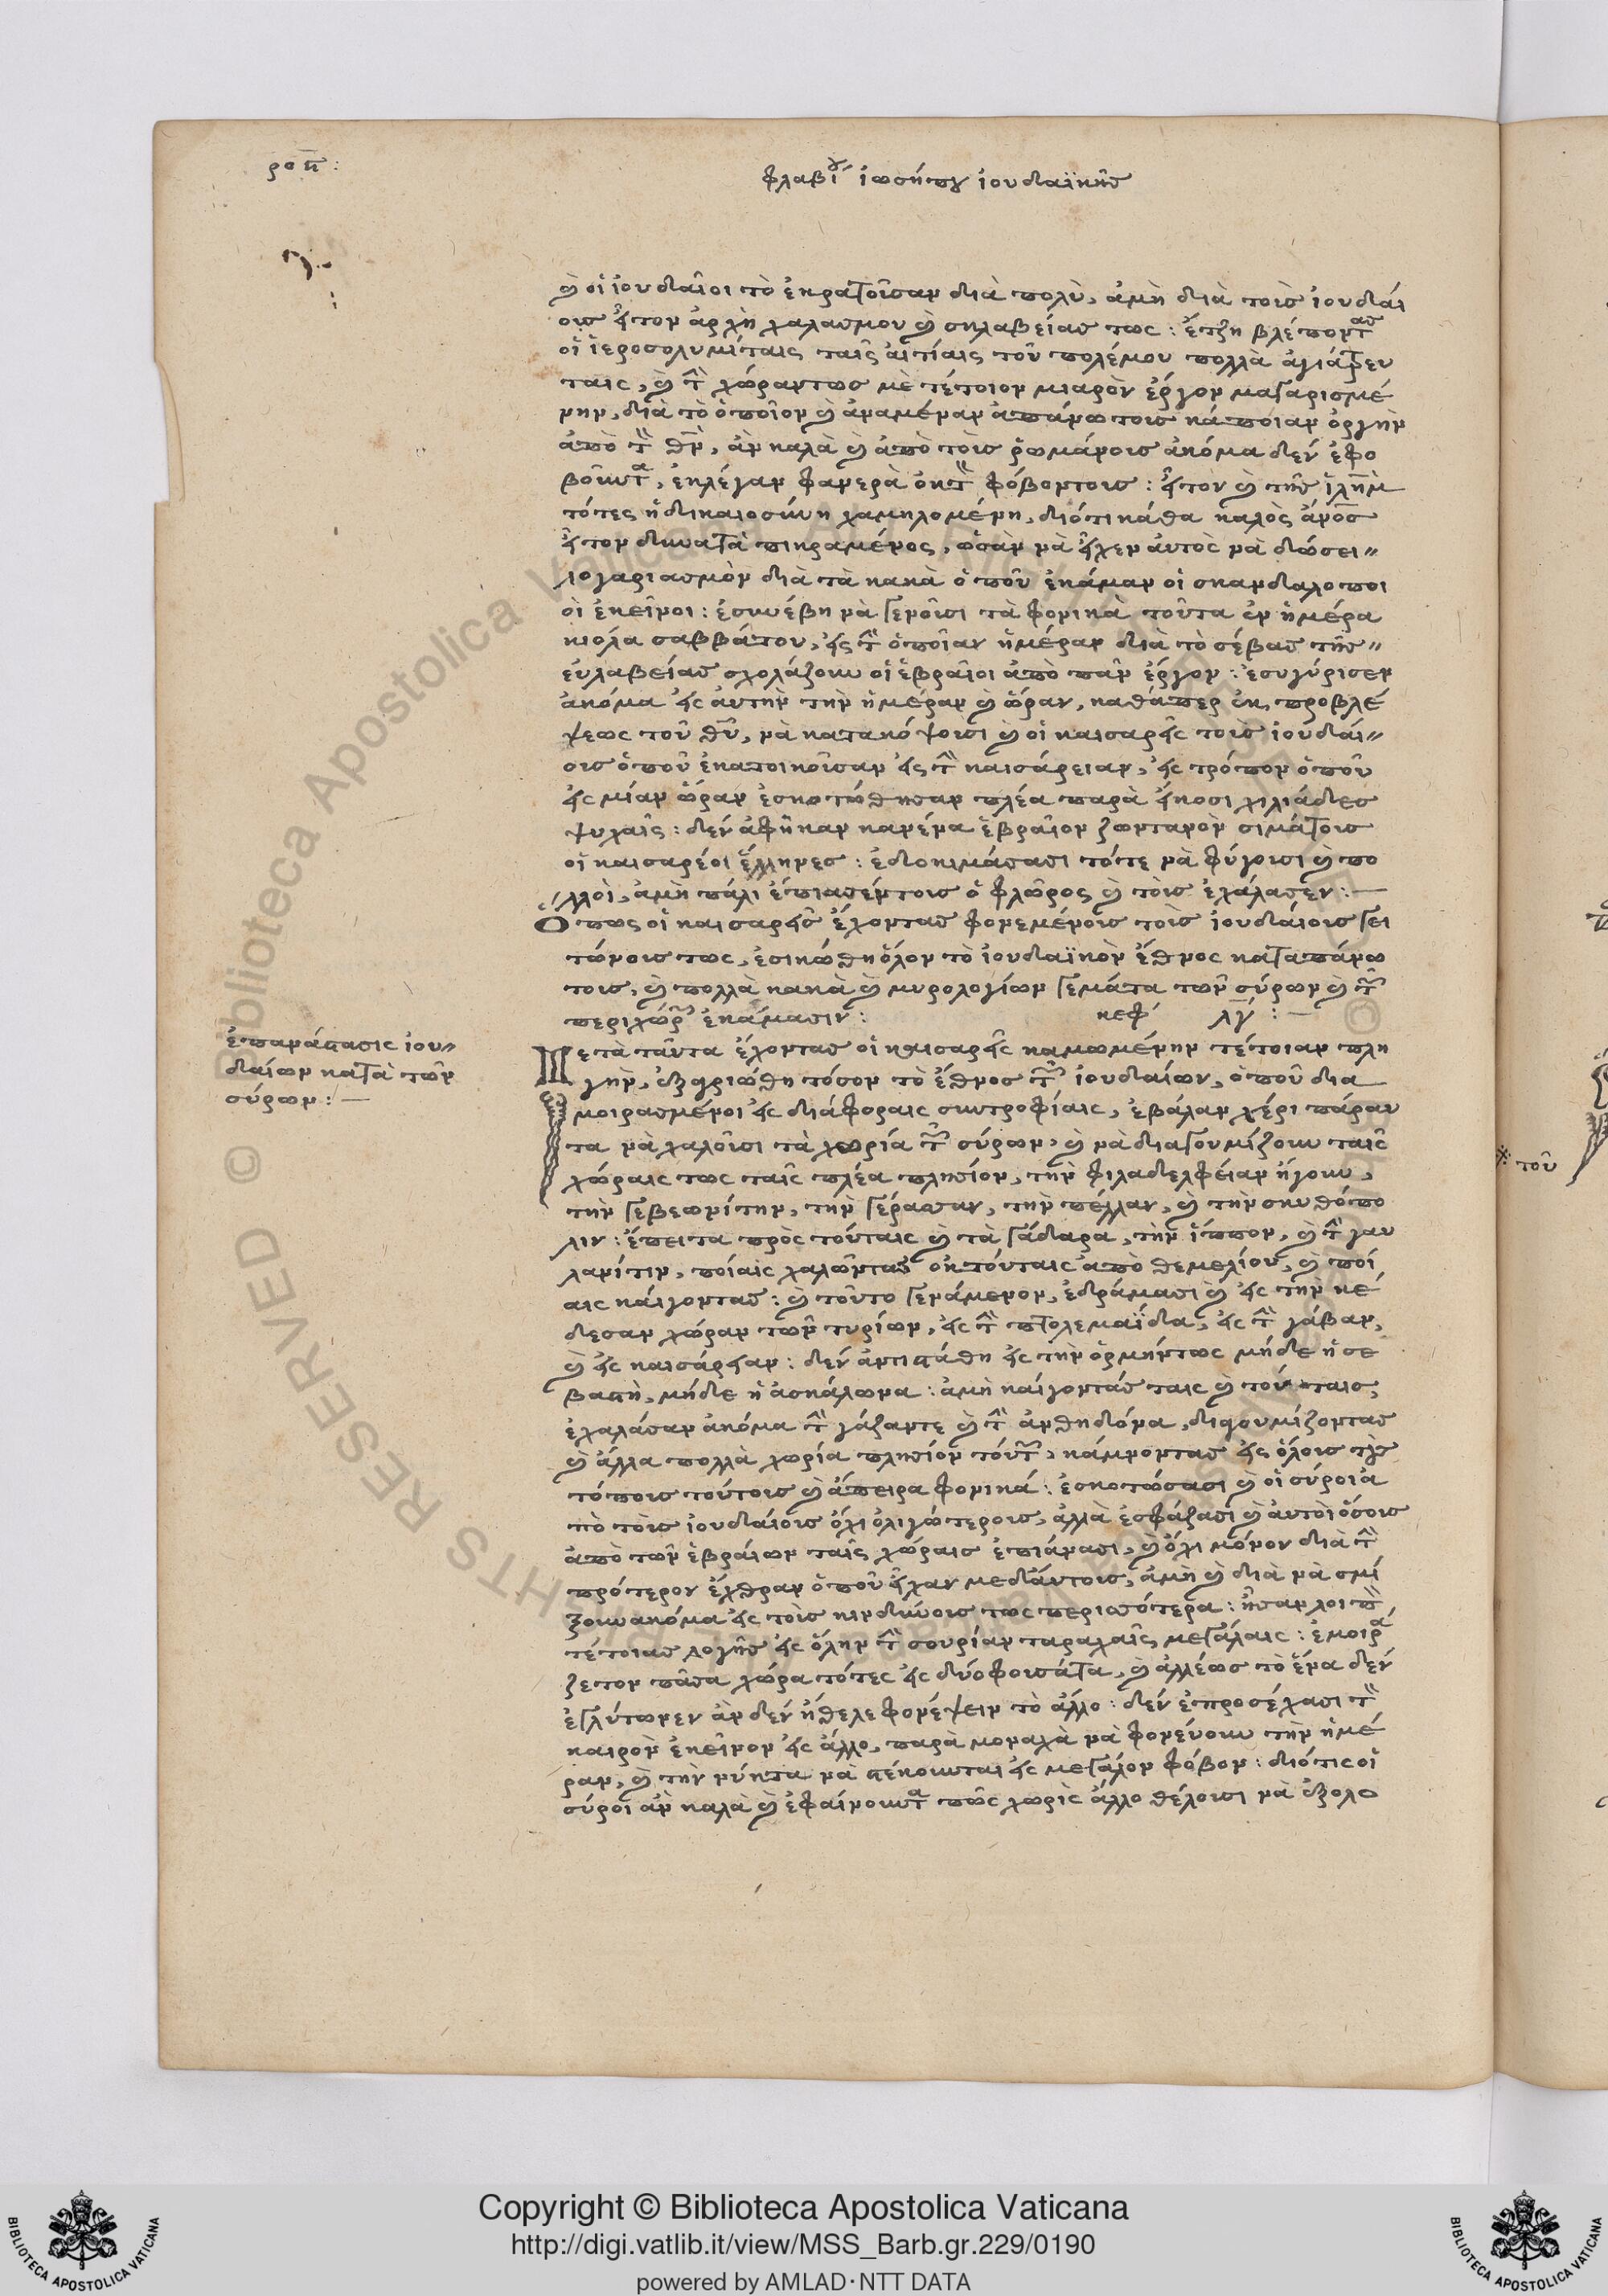 ροη:
φλαβίου ἰωσήπου ἰουδαϊκῆς
καὶ οἱ ἰουδαῖοι τὸ ἐκρατοῦσαν διὰ πολὺ, ἀμὴ διὰ τοὺς ἰουδάι
οις ἦτον ἀρχὴ χαλασμου καὶ σκλαβείας τως: ἔτζη βλέποντας
οἱ ἱεροσολυμίταις ταῖς αἰτίαις τοῦ πολέμου πολλὰ ἀγιάτρευ
ταις, καὶ τὴ χώραντως μὲ τέτοιον μιαρὸν ἔργον μαγαρισμέ
νην, διὰ τὸ ὁποῖον καὶ ἀναμέναν ἀπάνω τους κάποιαν ὀργὴν
ἀπὸ τὸ θν̅, ἂν καλὰ καὶ ἀπὸ τοὺς ῥωμάνους ἀκόμα δὲν ἐφο
βοῦντα, ἐκλέγαν φανερὰ ἐκ τὸ φόβοντους: ἦτον καὶ τῆς ἱλη̅μ
τότες ἡ δικαιοσύνη χαμηλομένη, διότι κάθα καλὸς ἄνο̅ς
ἦτον δυνατὰ πικραμένος, ὡσὰν νὰ εἶχεν ἀυτὸς νὰ δώσει
λογαριασμὸν διὰ τὰ κακὰ ὁποῦ ἐκάμαν οἱ σκανδαλοποι
οὶ ἐκεῖνοι: ἐσυνέβη νὰ γενοῦσι τὰ φονικὰ τοῦτα ἐν ἡμέρα
κιολα σαββάτου, εἰς τὴ ὁποῖαν ἡμέραν διὰ τὸ σέβας τῆς
εὐλαβείας σχολάζουν οἱ ἑβραῖοι ἀπὸ παν ἔργον: ἐσυγύρισεν
ἀκόμα εἰς ἀυτὴν τὴν ἡμέραν καὶ ὥραν, καθάπερ ἐκ προβλέ
ψεως τοῦ θυ̅, νὰ κατακόψουσι καὶ οἱ καισαρεῖς τοὺς ἰουδάι
ους ὁποῦ ἐκατοικοῦσαν εἰς τὴ καισάρειαν, εἰς τρόπον ὁποῦ
εἰς μίαν ὥραν ἐσκοτώθησαν πλέα παρὰ εἴκοσι χιλιάδες
ψυχαῖς: δὲν ἀφῆκαν κανένα ἑβραῖον ζωντανὸν σιμάτους
οἱ καισαρέοι ἕλληνες: ἐδοκιμάσασι τότε νὰ φύγουσι καὶ πο
λλοὶ, ἀμὴ πάλι ἐπιασέντους ὁ φλῶρος καὶ τοὺς ἐχάλασεν:
Ὅπως οἱ καισαρεῖς ἔχοντας φονεμένους τοὺς ἰουδάιους γει
τώνους τως, ἐσικώθη ὅλον τὸ ἰουδαϊκὸν ἔθνος κατὰ πάνω
τους, καὶ πολλὰ κακὰ καὶ μυρολογίων γεμάτα τῶν σύρων καὶ τῶν
περιχώρων ἐκάμασιν: κεφ λγ:
ἐπανάστασις ἰου
δαίων κατὰ τῶν
σύρων:
Μετὰ ταῦτα ἔχοντας οἱ καισαρεῖς καμωμένην τέτοιαν πλη
γὴν, ἐξαγριώθη τόσον τὸ ἔθνος τῶν ἰουδαίων, ὁποῦ δια
μοιρασμένοι εἰς διάφοραις συντροφίαις, ἐβάλαν χέρι πάραυ
τα νὰ χαλοῦσι τὰ χωρία τῶν σύρων, καὶ νὰ διαγουμίζουν ταῖς
χώραις τως ταῖς πλέα πλησίον, τὴν φιλαδελφέιαν ἤγουν,
τὴν γεβεωνίτην, τὴν γέρασαν, τὴν πέλλαν, καὶ τὴν σκυθόπο
λιν: ἔπειτα πρὸς τούταις καὶ τὰ γάδαρα, τὴν ἵππον, καὶ τὴ γαυ
λανίτιν, ποίαις χαλῶντας ἐκ τούταις ἀπὸ θεμελίου, καὶ ποί
αις κάιγοντας: καὶ τοῦτο γενάμενον, ἐδράμασι καὶ εἰς τὴν κέ
δεσαν χώραν τῶν τυρίων, εἰς τὴ πτολεμαΐδα, εἰς τὴ γάβαν,
καὶ εἰς καισάρειαν: δὲν ἀντιστάθη εἰς τὴν ὁρμήντως μήδε ἡ σε
βαστὴ, μήδε ἡ ἀσκάλωνα: ἀμὴ κάιγοντάς ταις καὶ τούταις,
ἐχαλάσαν ἀκόμα τὴ γάζαντε καὶ τὴ ἀνθηδόνα, διαγουμίζοντας
καὶ ἄλλα πολλὰ χωρία πλησίον τούτων, κάμνοντας εἰς ὅλους τοὺς
τόπους τούτους καὶ ἄπειρα φονικά: ἐσκοτώσασι καὶ οἱ σύροι ἀ
πὸ τοὺς ἰουδαίους ὄχι ὀλιγώτερους, ἀλλὰ ἐσφάξασι καὶ ἀυτοὶ ὅσους
ἀπὸ τῶν ἑβραίων ταῖς χώραις ἐπιάνασι, καὶ ὄχι μόνον διὰ τὴ
πρότερον ἔχθραν ὁποῦ εἶχαν μεδάυτους, ἀμὴ καὶ διὰ νὰ σμί
ξουν ἀκόμα εἰς τοὺς κινδύνους τως περισσότερα: ἦσαν λοιπὸ
τέτοιας λογῆς εἰς ὅλην τὴ σουρίαν ταραχαῖς μεγάλαις: ἐμοιρά
ζετον πᾶσα χώρα τότες εἰς δύο φουσάτα, καὶ ἀλλέως τὸ ἕνα δὲν
ἐγλύτωνεν ἂν δὲν ἤθελε φονέψειν τὸ ἄλλο: δὲν ἐπροσέχασι τὸ
καιρὸν ἐκεῖνον εἰς ἄλλο, παρὰ μοναχὰ νὰ φονέυουν τὴν ἡμέ
ραν, καὶ τὴν νύκτα νὰ στέκουνται εἰς μεγάλον φόβον: διότις οἱ
σύροι ἂν καλὰ καὶ ἐφαίνουντα πῶς χωρὶς ἄλλο θέλουσι νὰ ἐξολο
τοῦ
Copyright © Biblioteca Apostolica Vaticana
http://digi.vatlib.it/view/MSS_Barb.gr.229/0190
powered by AMLAD·NTT DATA